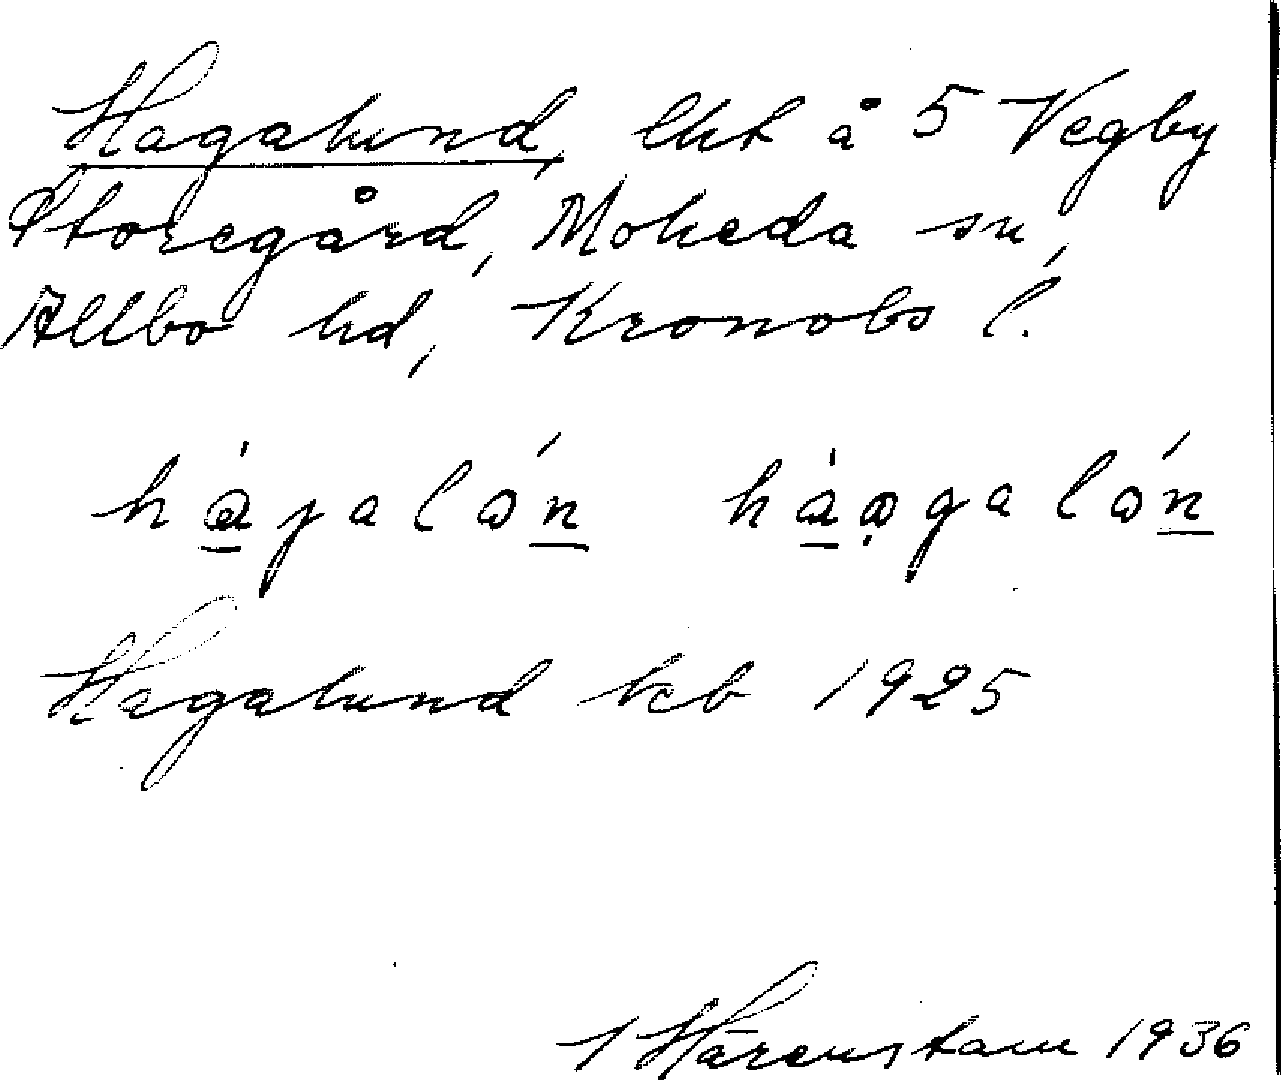 Hagalund, lht å 5 Vegby
Storegård, Moheda sn,
Allbo hd, Kronobs l.
hàɡalón hàgalón
Hagalund kb 1925
Härenstam 1936